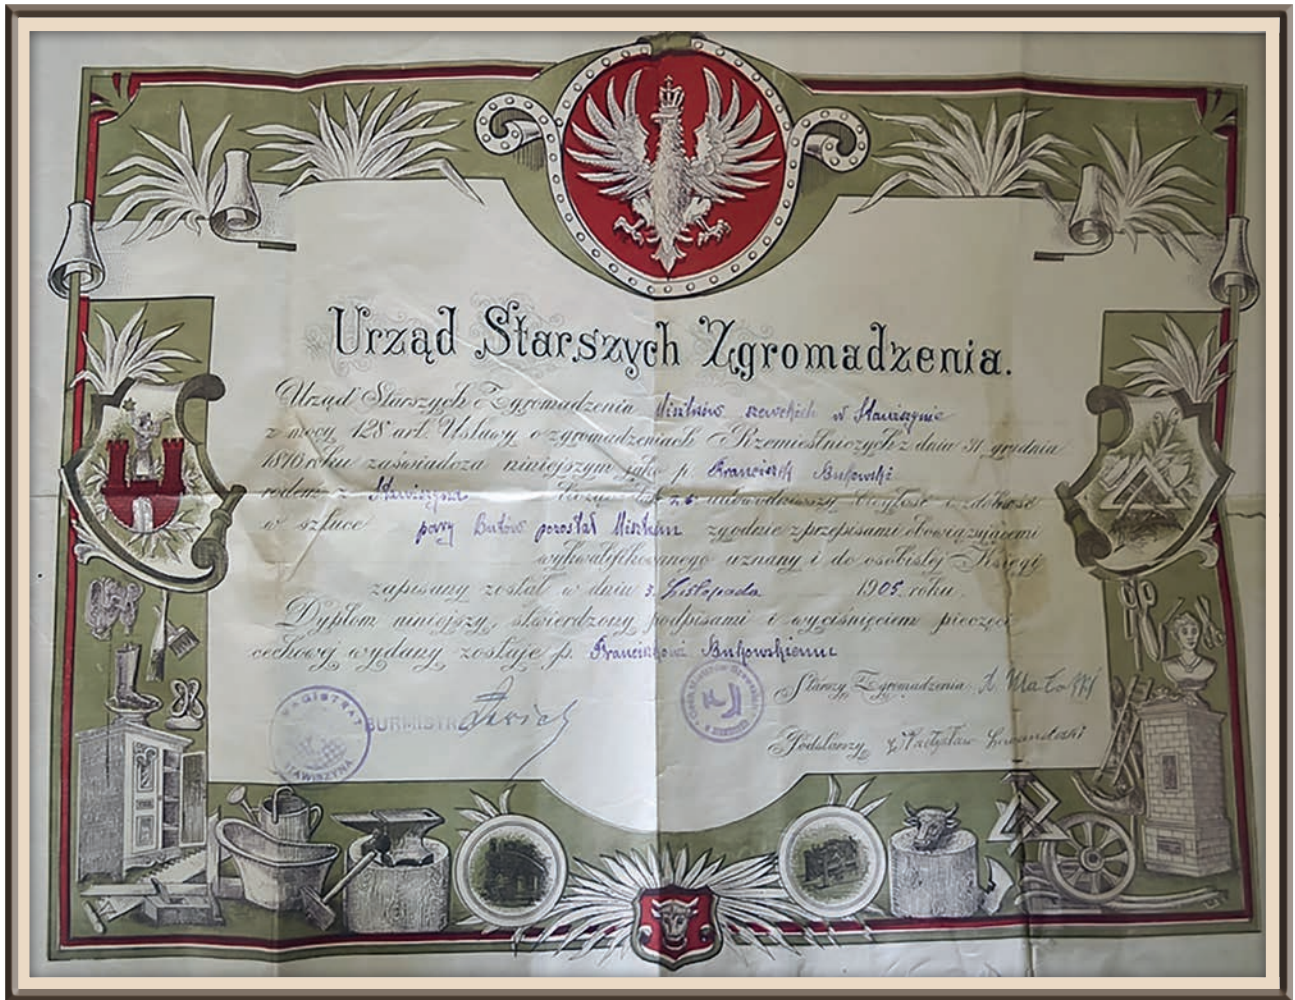 Urząd Starszych Zgromadzenia.
Urząd Starszych Zgromadzenia Mistrzów szewckich w Stawiszynie
z mocy 128 art. Ustawy o zgromadzeniach Rzemieślniczych z dnia 31 grudnia
1816 roku zaświadcza niniejszym jako p. Franciszek Bukowski
rodem z Stawiszyna liczący lat 26 udowodniwszy zdolność
w sztuce pary Butów został Mistrzem zgodnie z przepisami obowiązującemi
wykwalifikowanego uznany i do osobistej Księgi
zapisany został w dniu 3. Listopada 1905 roku.
Dyplom niniejszy, stwierdzony podpisami i wyciśnięciem pieczęci
cechowej wydany zostaje p. Franciszkowi Bukowskiemu
MAGISTRAT
STAWISZYNA
BURMISTRZ
Starszy Zgromadzenia
Podstarszy